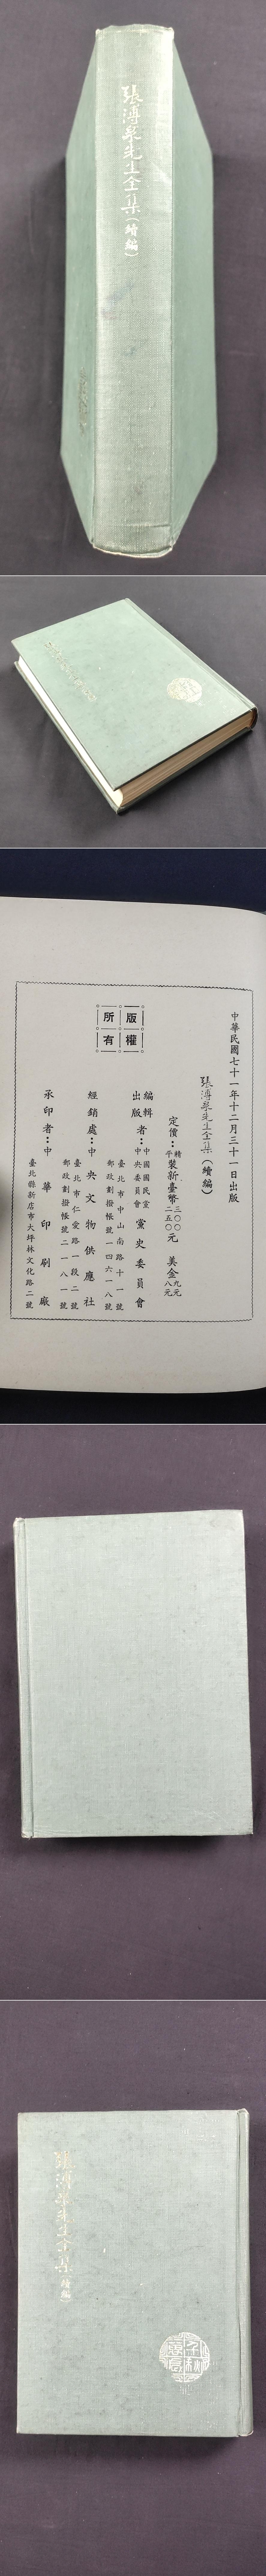 張溥泉先生全集（續編）
中華民國七十一年十二月三十一日出版
張溥泉先生全集（續編）
定價：精裝新臺幣三〇〇元 美金九元
平裝新臺幣二五〇元 美金八元
版權所有
編輯出版者：中國國民黨中央委員會黨史委員會
臺北市中山南路十一號
郵政劃撥帳號一四六一八號
經銷處：中央文物供應社
臺北市仁愛路一段二號
郵政劃撥帳號二一八一號
承印者：中華印刷廠
臺北縣新店市大坪林文化路二號
張溥泉先生全集（續編）